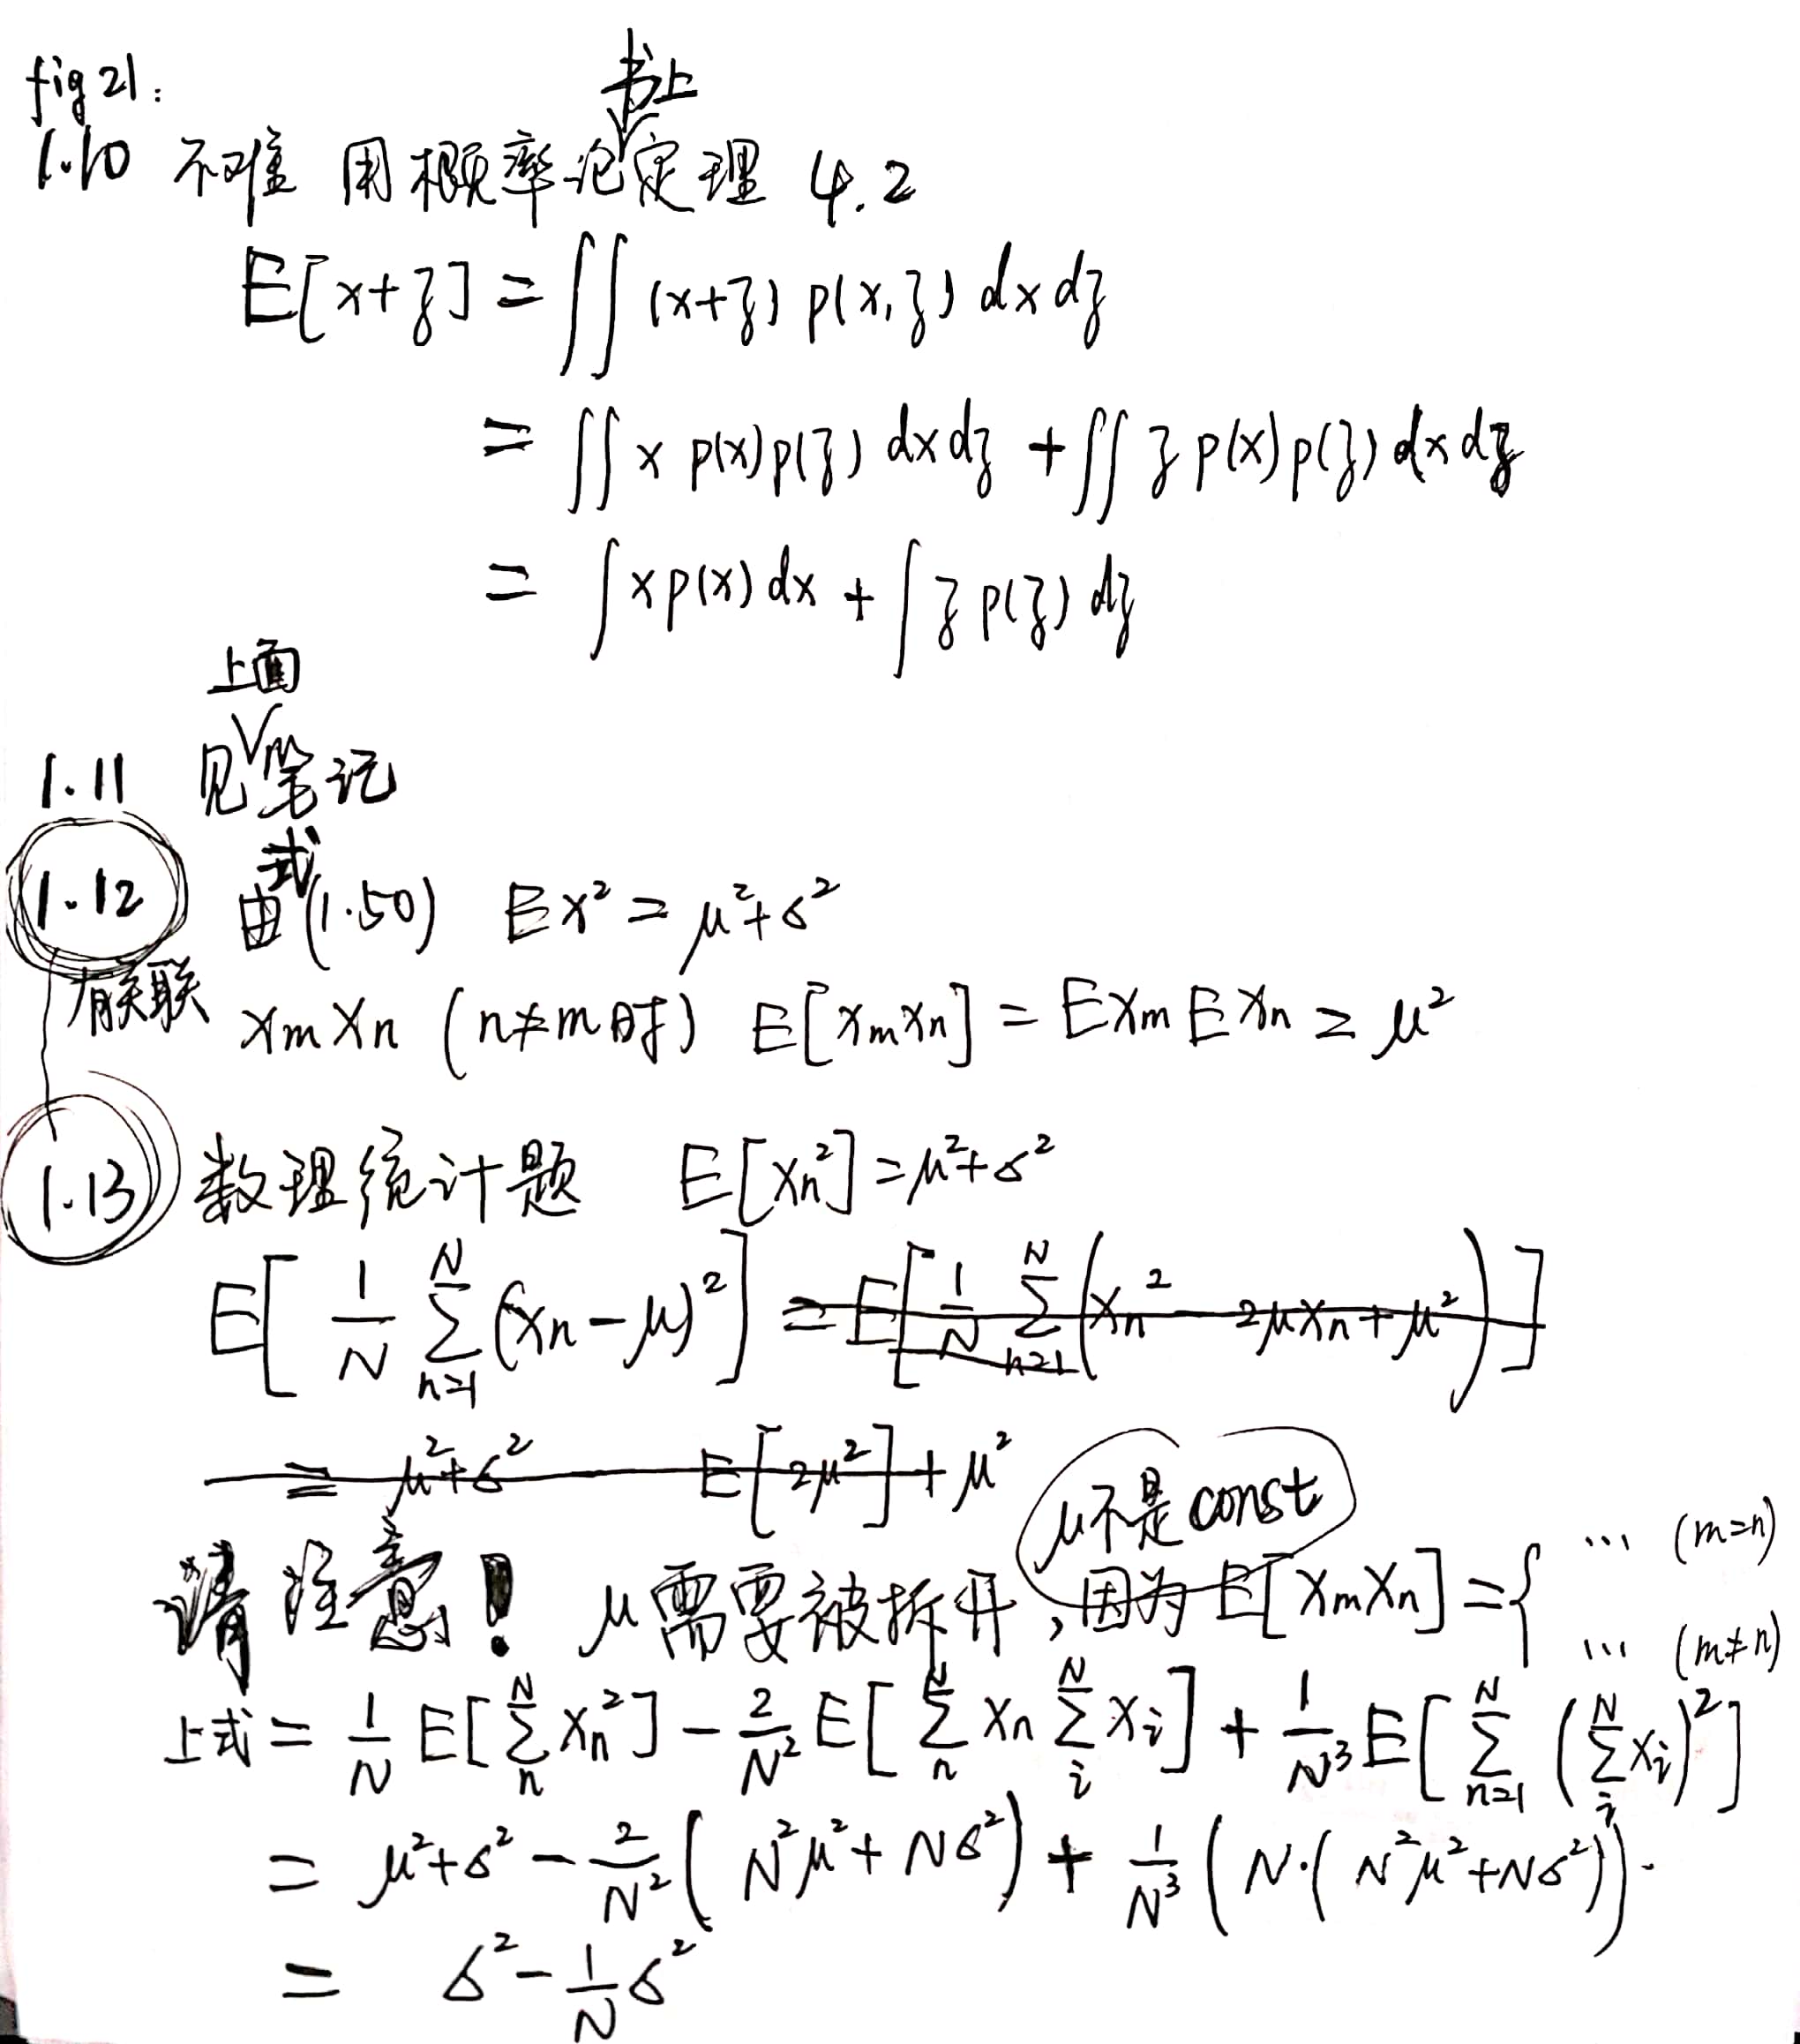 fig 21:
1.10 不难 用概率论书上定理 4.2
E[x+z] = ∬ (x+z) p(x,z) dx dz
= ∬ x p(x)p(z) dx dz + ∬ z p(x)p(z) dx dz
= ∫ x p(x) dx + ∫ z p(z) dz
1.11 见上面笔记
1.12 由式(1.50) Ex² = μ²+σ²
有关联
xm xn (n≠m时) E[xm xn] = Exm Exn = μ²
1.13 数理统计题 E[xn²] = μ²+σ²
E[ 1/N ∑_{n=1}^{N} (xn-μ)² ] = E[ 1/N ∑_{n=1}^{N} (xn² - 2μxn + μ²) ]
= μ²+σ² - E[2μ²] + μ²
μ不是const
请注意! μ需要被拆开, 因为 E[xm xn] = { ... (m=n)
... (m≠n)
上式 = 1/N E[∑_{n}^{N} xn²] - 2/N² E[∑_{n}^{N} xn ∑_{i}^{N} xi] + 1/N³ E[∑_{n=1}^{N} (∑_{i}^{N} xi)²]
= μ²+σ² - 2/N² (N²μ² + Nσ²) + 1/N³ (N·(N²μ²+Nσ²)).
= σ² - 1/N σ²